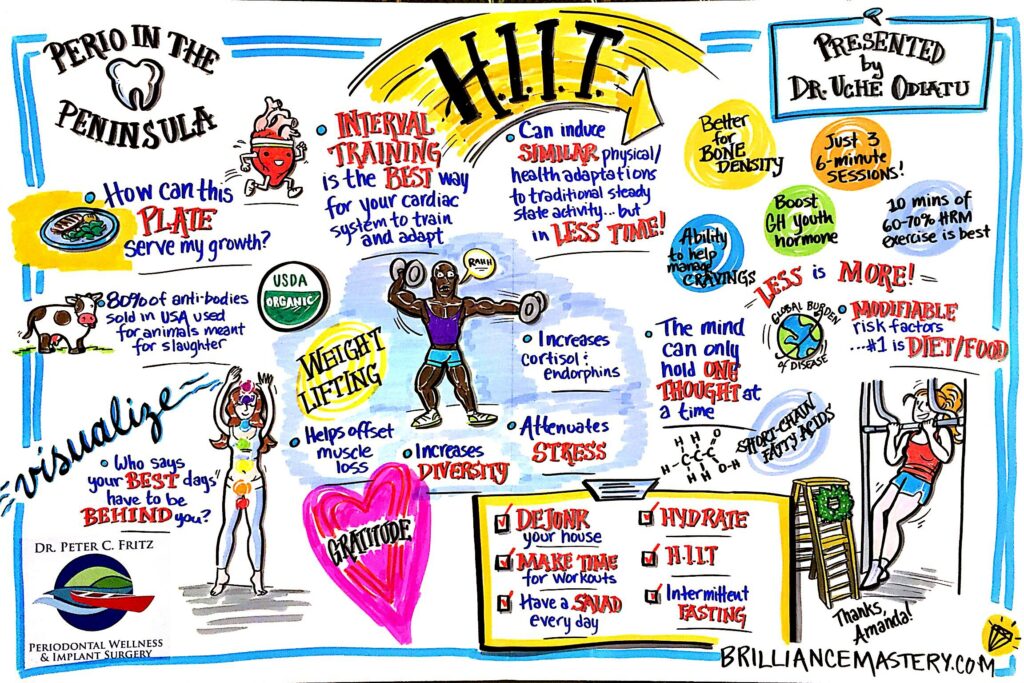 PERIO IN THE
PENINSULA
H.I.I.T.
PRESENTED
by
DR. UCHE ODIATU
INTERVAL
TRAINING
is the BEST way
for your cardiac
system to train
and adapt
Can induce
SIMILAR physical/
health adaptations
to traditional steady
state activity... but
in LESS TIME!
Better
for
BONE
DENSITY
Just 3
6-minute
SESSIONS!
Boost
GH youth
hormone
10 mins of
60-70% HRM
exercise is best
Ability
to help
manage
CRAVINGS
LESS is MORE!
How can this
PLATE
serve my growth?
80% of anti-bodies
sold in USA used
for animals meant
for slaughter
USDA
ORGANIC
RAHH
WEIGHT
LIFTING
Increases
cortisol &
endorphins
Helps offset
muscle
loss
Increases
DIVERSITY
Attenuates
STRESS
The mind
can only
hold ONE
THOUGHT at
a time
GLOBAL BURDEN
of DISEASE
MODIFIABLE
risk factors
...#1 is DIET/FOOD
SHORT-CHAIN
FATTY ACIDS
H H O
H-C-C-C
H H O-H
visualize
Who says
your BEST days
have to be
BEHIND you?
GRATITUDE
DEJUNK
your house
MAKE TIME
for workouts
Have a SALAD
every day
HYDRATE
H.I.I.T
Intermittent
FASTING
Thanks,
Amanda!
DR. PETER C. FRITZ
PERIODONTAL WELLNESS
& IMPLANT SURGERY
BRILLIANCEMASTERY.COM